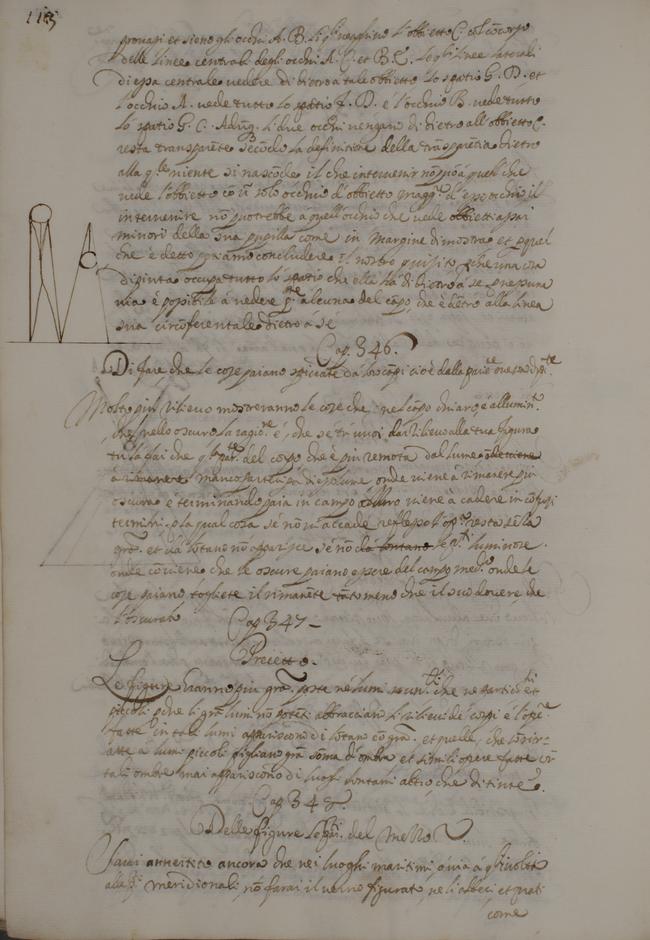 113
provasi et siano gli occhi A. B. li quali veghino l'obbietto C. col concorso
delle linee centrali degli occhi A. C. et B. C. le linee laterali
di essa centrale vedere di dietro a tale obbietto lo spatio G. D. et
l'occhio A. vede tutto lo spatio F. D. e l'occhio B. vede tutto
lo spatio G. C. Adunq. li due occhi vengano di dietro all'obbietto C.
resta transparẽte secõdo la definitione della trasparẽtia dietro
alla q.le niente si nascõde il che intervenir nõ può a quel che
vede l'obbietto cõ ũ solo occhio d'obbietto magg.r d'esso occhio il
intervenire nõ potrebbe a quell'occhio che vede obbietti assai
minori della sua pupilla come in margine dimostra et p quel
che è detto possiamo concludere il nostro quisito pche una cosa
dipinta occupa tutto lo spatio che ella ha di dietro a se e p nessuna
via è possibile a vedere p.te alcuna del cãpo, che è dẽtro alla linea
sua circõferentiale dietro a sé
Cap. 346.
Di fare, che le cose paiano spiccate da lor cãpi cioè della pariete
Molto più rilievo mostreranno le cose che nel cãpo chiaro, è allumin.
che nello oscuro la ragio.ne è, che se tu vuoi dar rilievo alla tua figura
tu la fai che q.lla par.te del corpo che è più remota dal lume
manco partecipi di esso lume onde viene à rimanere più
oscura e terminando poi in campo scuro viene à cadere in cõfusi
termini p la qual cosa se nõ vi accade reflesso l'op.a resta sẽza
gra.a et da lõtano nõ apparisce se nõ le p.ti luminose
onde cõviene che le oscure paiano essere del campo med.o onde le
cose paiano tagliate il rimanẽte tãto meno che il suo dovere, che
l'oscuro
Cap. 347 –
Precetto.
Le figure hanno più gra.a poste ne lumi che ne particolari et
piccoli pche li grã lumi nõ potẽti abbracciano li rilievi de corpi e l'ope.
fatte in tali lumi appariscono di lõtano cõ gra.a et quelle, che son rit-
ratte a lumi piccoli pigliano grã soma d'ombra et simili opere fatte cõ
tali ombre mai appariscono di luoghi lontani altro, che di tinte.
Cap. 348.
Delle figure del
Sarai avvertito ancora che nei luoghi maritimi ò vicini à q.lli volti
alle p.ti meridionali nõ farai il verno figurato ne li alberi et prati
come